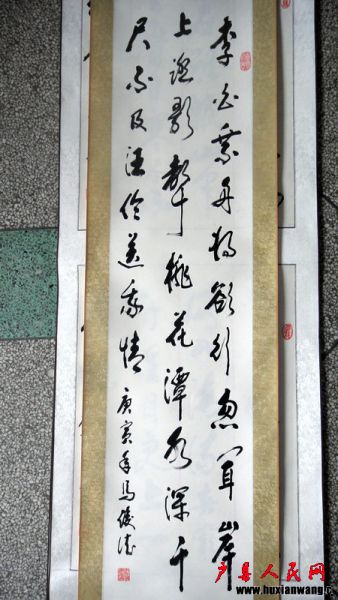 李白乘舟将欲行忽闻岸
上踏歌聲桃花潭水深千
尺不及汪伦送我情 庚寅年马俊
户县人民网
www.huxianwang.